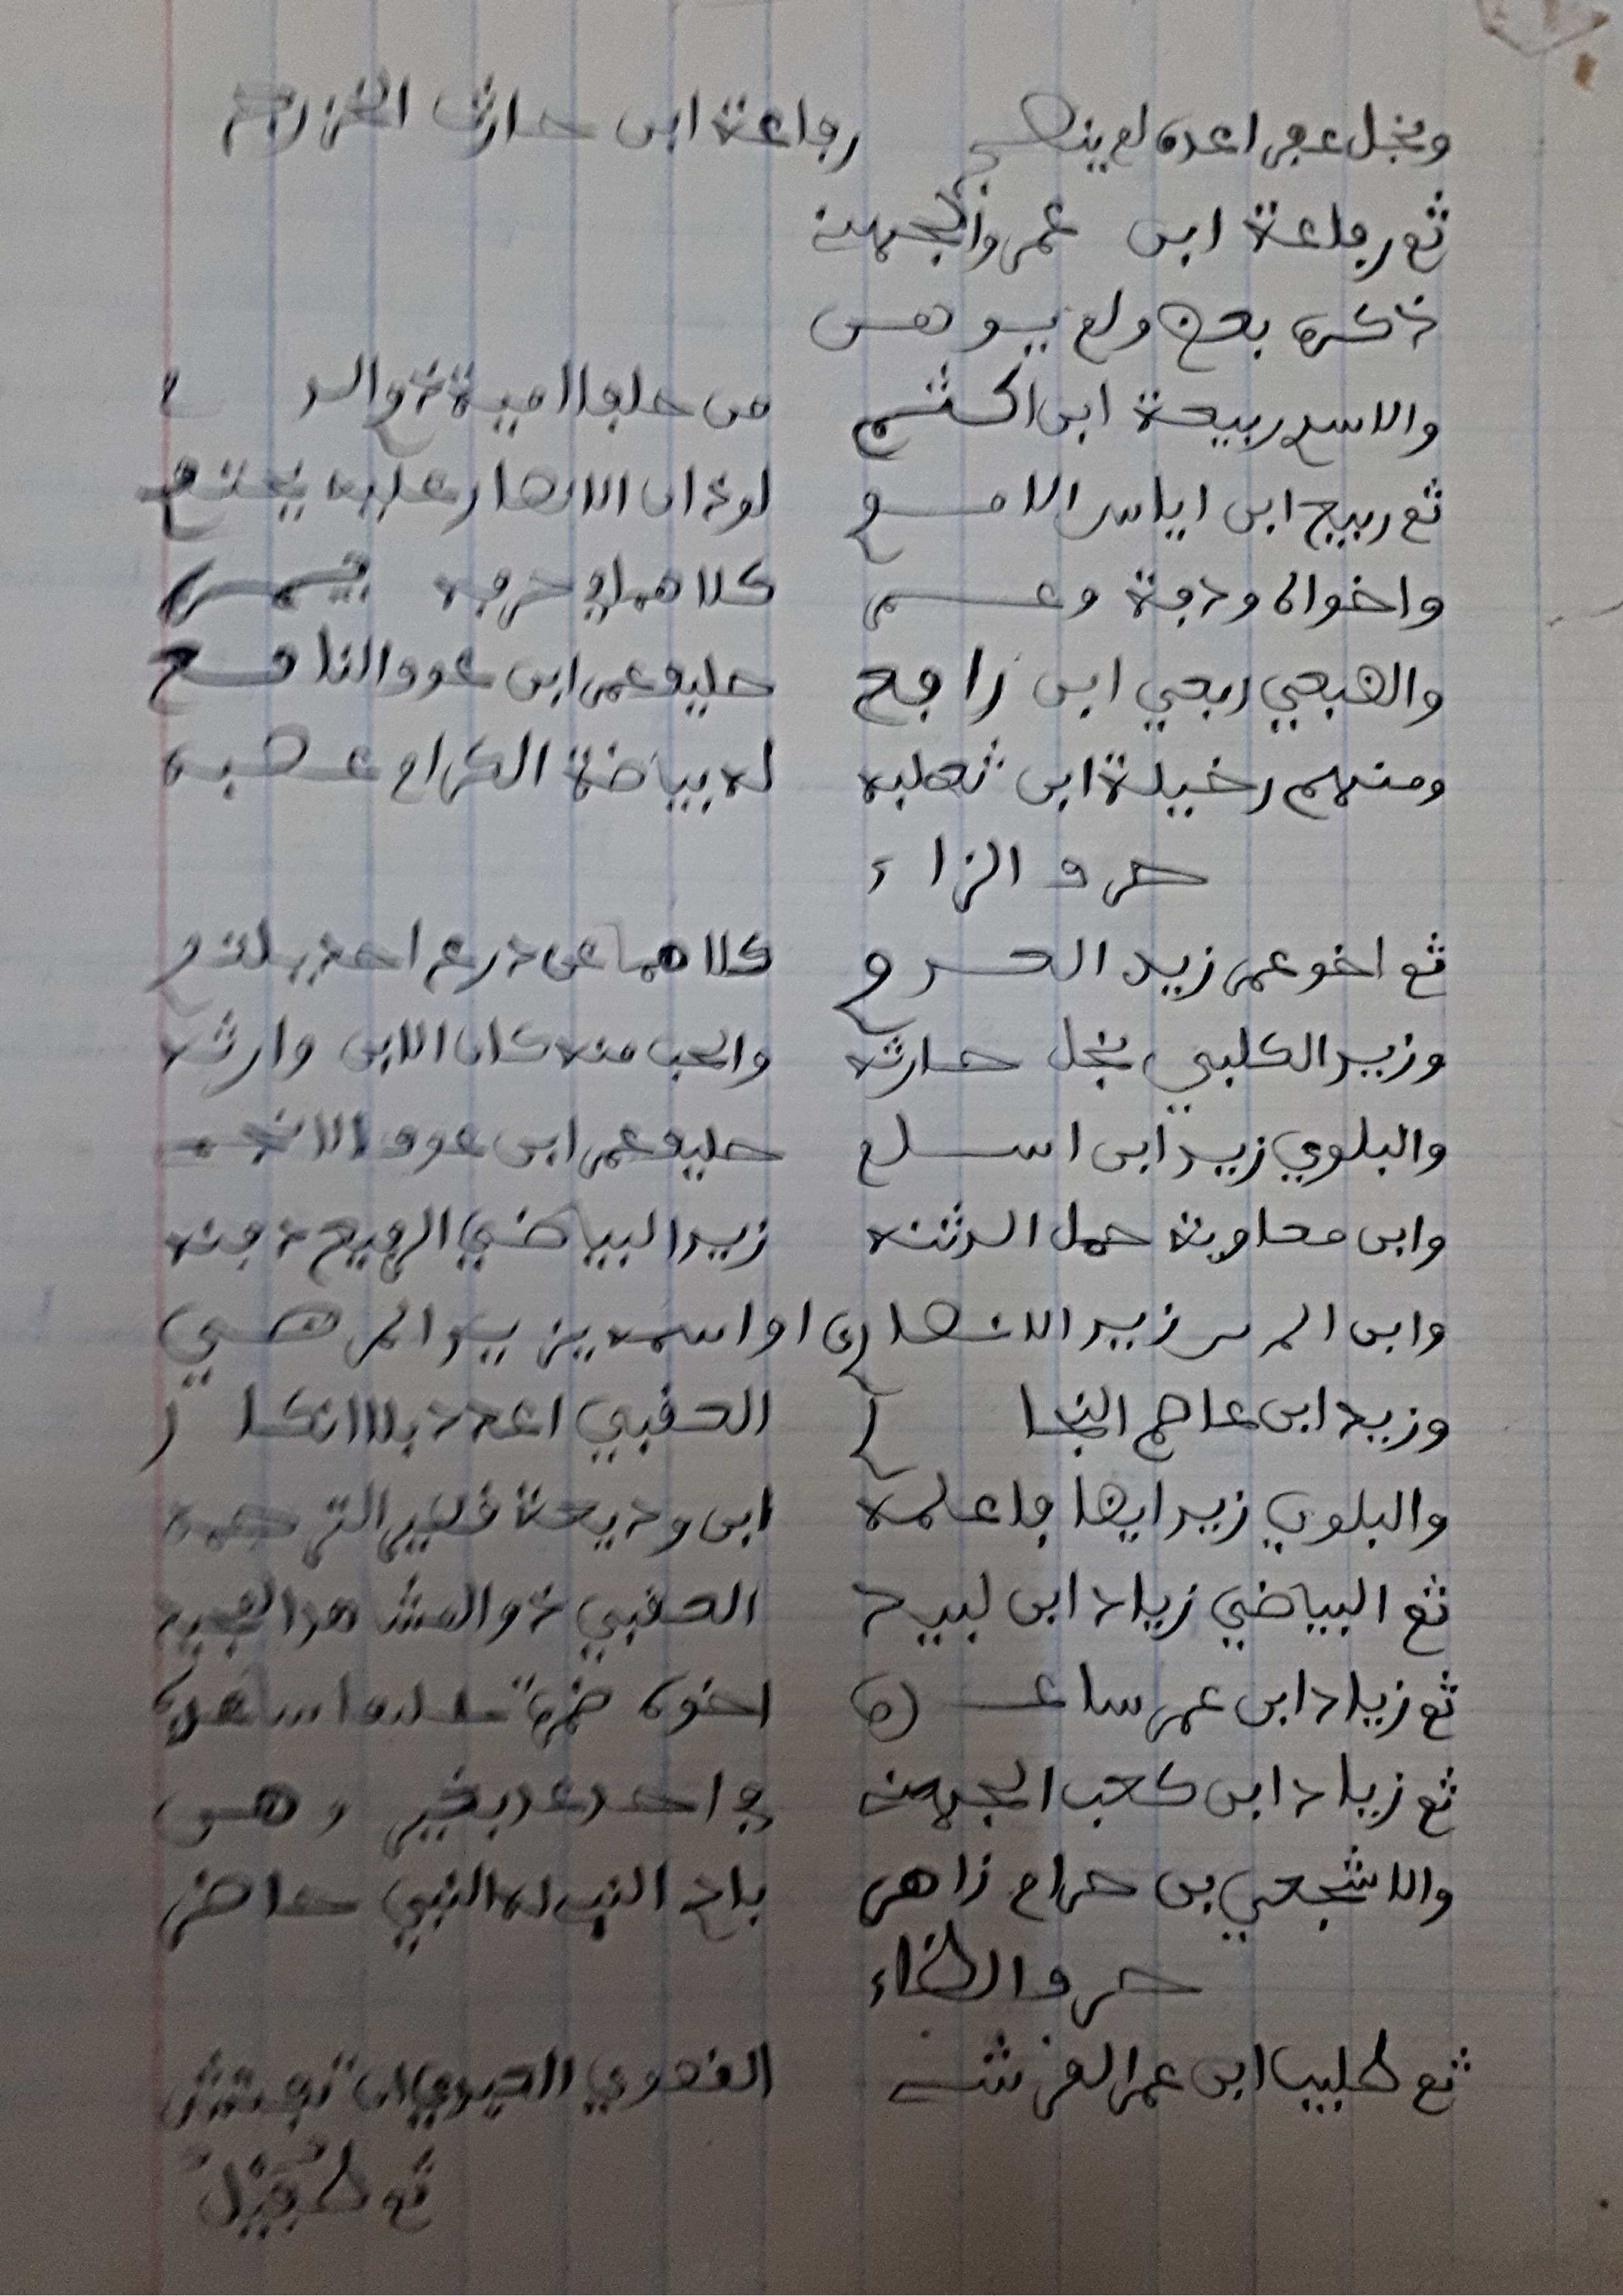 ونجل عفرا عده لم ينهج رفاعة ابن حارث الخزرج
ثم رفاعة ابن عمرو الجهن
ذكره بعض ولم يوهن
والاسدي ربيعة ابن اكثم من حلفا امية ذو الد م
ثم ربيع ابن اياس الامم لوذان الانصار عليه يختم
واخواه ودفة وعمر كلاهما في حرفه يمر
والضبعي ربعي ابن رافع حليف عمر ابن عوف النافع
ومنهم رخيلة ابن ثعلبه له بياضة الكرام عصبه
حرف الزاء
ثم اخو عمر زيد العدوي كلاهما عن درع احد يلتوي
وزيد الكلبي نجل حارثه والحب منه كان الابن وارثه
والبلوي زيد ابن اسلم حليف عمر ابن عوف الانجم
وابن معاوية حمل الدثنه زيد البياضي الرفيع دفنه
وابن المرس زيد الانصاري او اسمه يزيد المرضي
وزيد ابن عاصم النجار العقبي اعدد بلا انكار
والبلوي زيد ايضا فاعلمه ابن وديعة قصير الترجمه
ثم البياضي زياد ابن لبيد العقبي ذو المشاهد المجيد
ثم زياد ابن عمر ساعده اخوه ضمرة
ثم زياد ابن كعب الجهن في احد عد بخير وهن
والاشجعي بن حرام زاهر باد النبي له النبي حاضر
حرف الطاء
ثم طليب ابن عمر القرشي
ثم طفيل